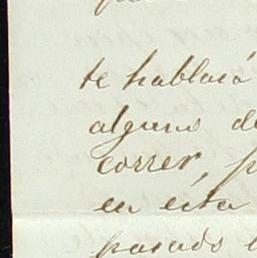 te hablará
alguno de
correr, p
en esta
pasado l